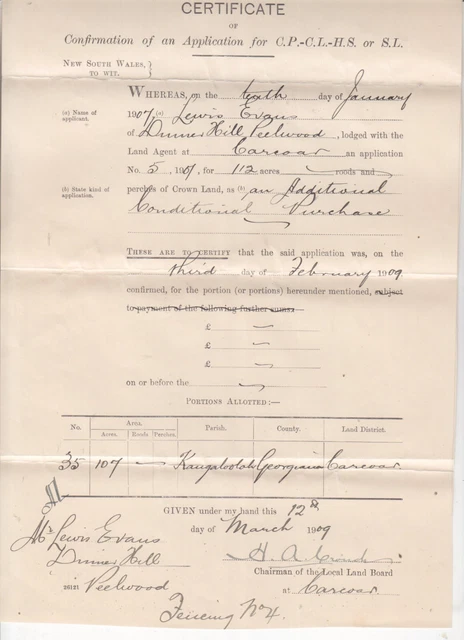 CERTIFICATE
OF
Confirmation of an Application for C.P.-C.L.-H.S. or S.L.
NEW SOUTH WALES, }
TO WIT. }
WHEREAS, on the tenth day of January
(a) Name of applicant. 1907 (a) Lewis Evans
of Dinner Hill Peelwood, lodged with the
Land Agent at Carcoar an application
No. 5 1907, for 112 acres — roods and —
(b) State kind of application. perches of Crown Land, as (b) an Additional
Conditional Purchase
THESE ARE TO CERTIFY that the said application was, on the
third day of February 1909
confirmed, for the portion (or portions) hereunder mentioned, subject
to payment of the following further sums:
£ —
£ —
£ —
on or before the —
PORTIONS ALLOTED :—
No. Area. Parish. County. Land District.
Acres. Roods Perches.
35 107 — Kangaloolah Georgiana Carcoar
GIVEN under my hand this 12th
day of March 1909
Mr Lewis Evans
Dinner Hill
H. A.
Chairman of the Local Land Board
26121 Peelwood at Carcoar
Fencing No 4.